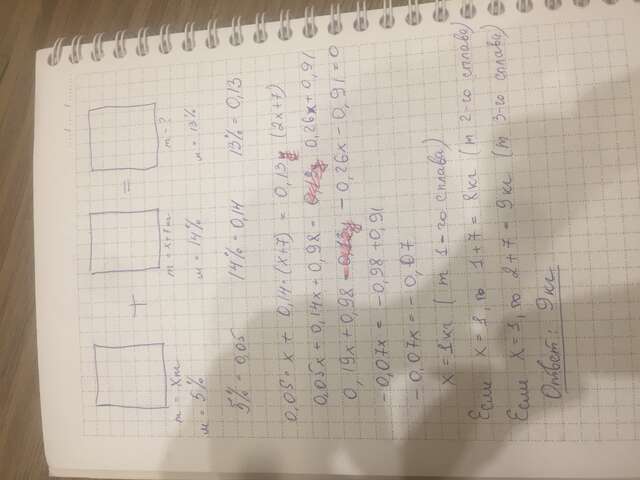 + =
m = xкг m = x+7кг m - ?
м = 5% м = 14% м = 13%
5% = 0,05 14% = 0,14 13% = 0,13
0,05 · x + 0,14 · (x+7) = 0,13 (2x+7)
0,05x + 0,14x + 0,98 = 0,26x + 0,91
0,19x + 0,98 - 0,26x - 0,91 = 0
-0,07x = -0,98 + 0,91
-0,07x = -0,07
x = 1кг (m 1-го сплава)
Если x = 1, то 1+7 = 8кг (m 2-го сплава)
Если x = 1, то 2+7 = 9кг (m 3-го сплава)
Ответ: 9кг